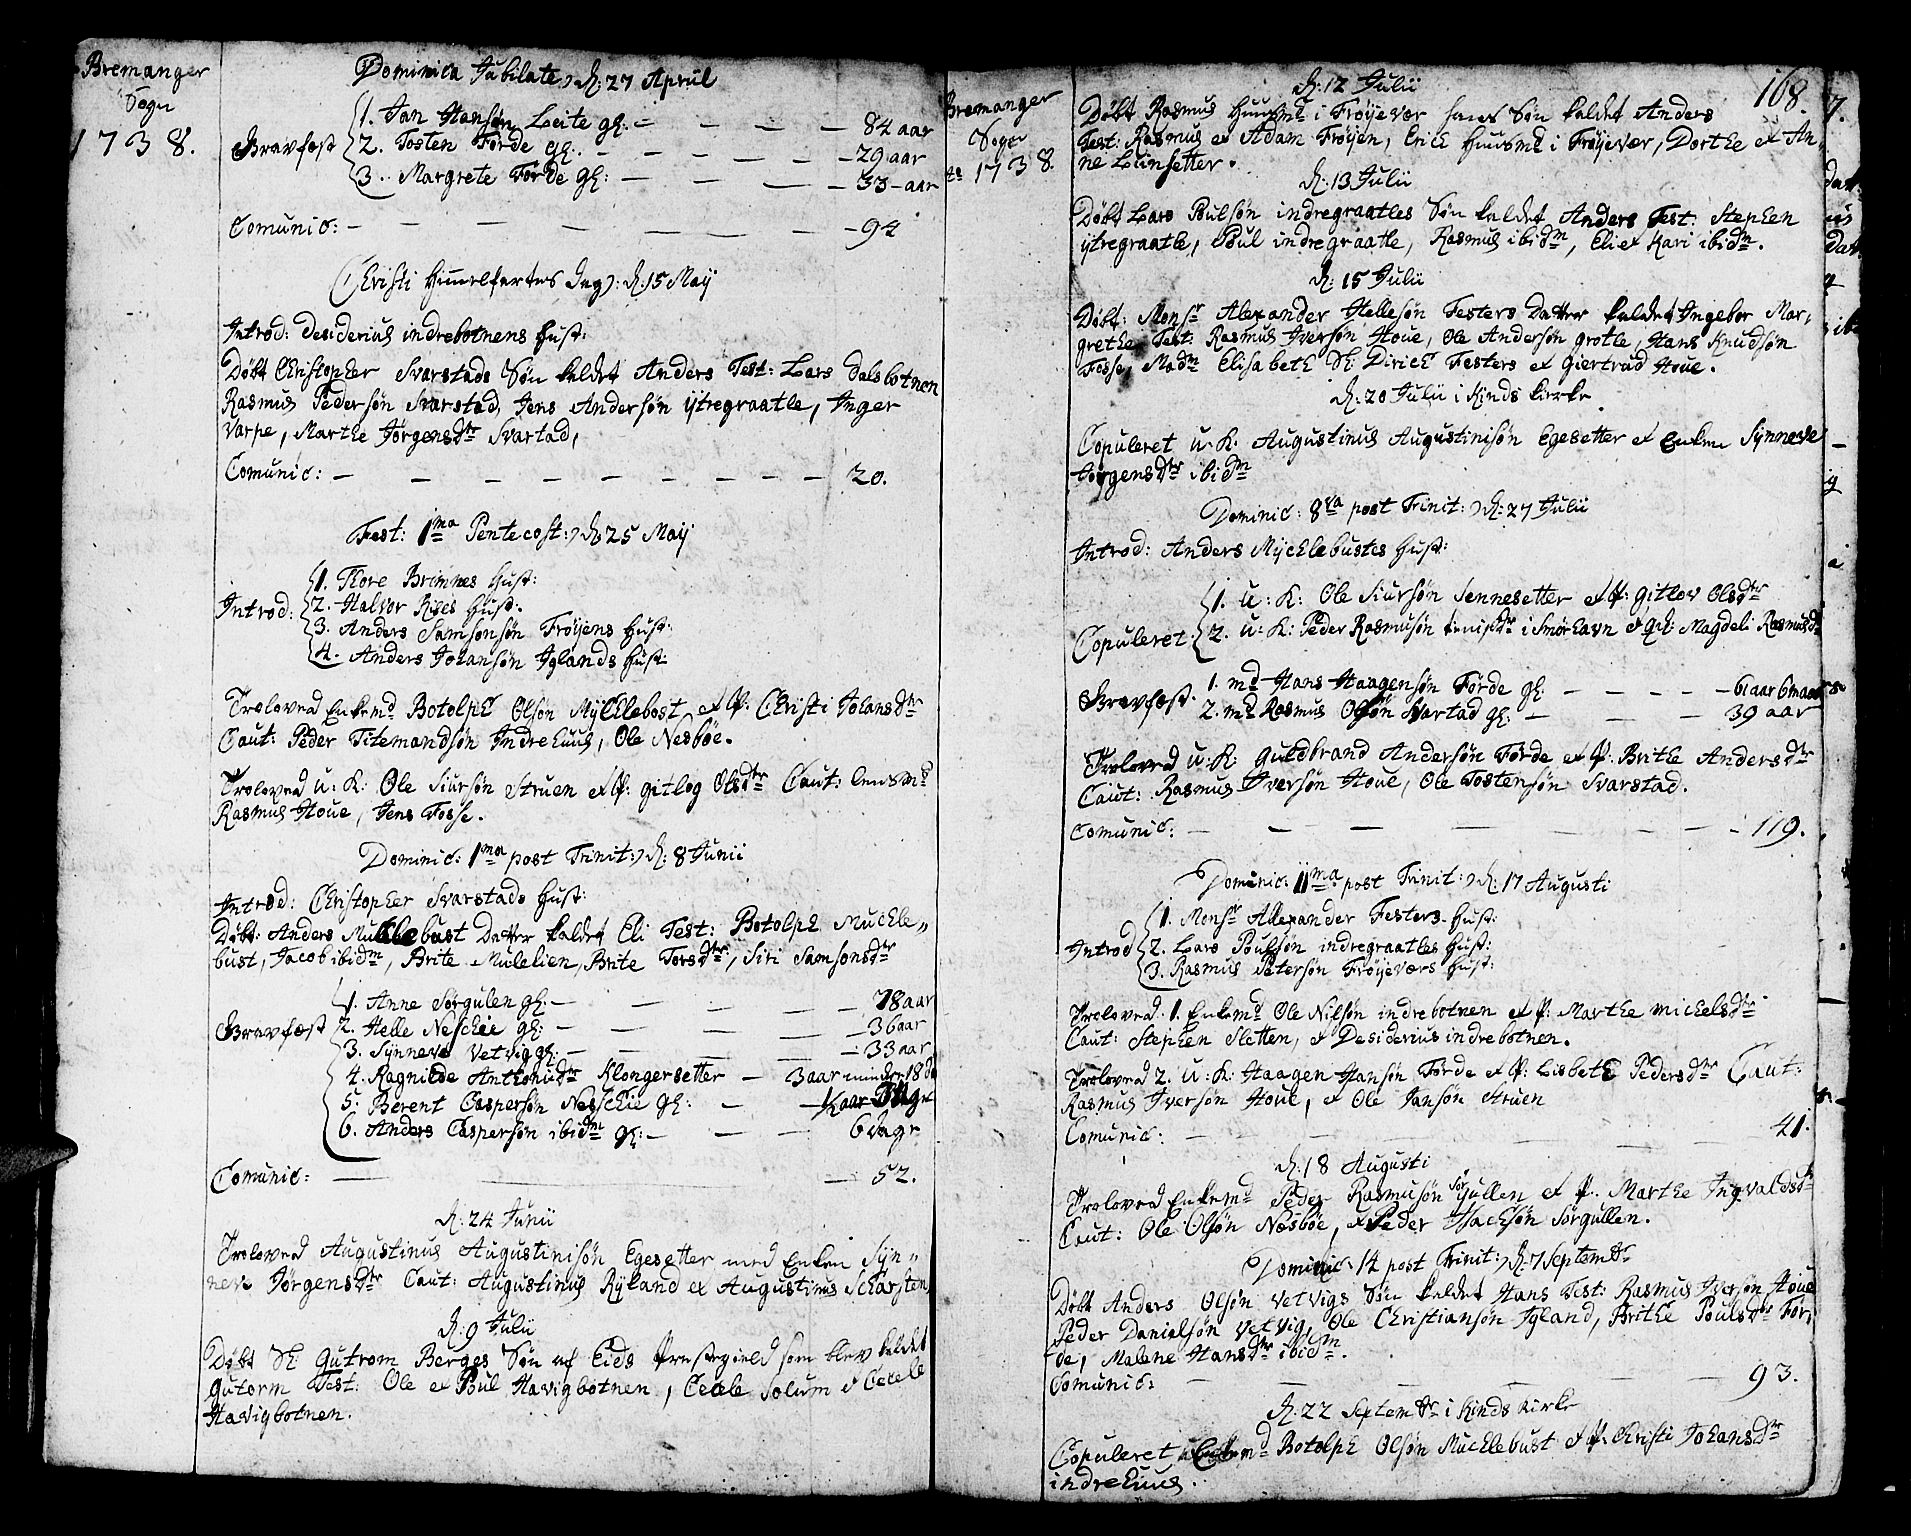 Bremanger
Sogn
1738.
Dominica Jubilate, d: 27 April
1. Jan Hansøn Leite gl: - - - - 84 aar
Gravfæst 2. Tosten Førde gl: - - - - 29 aar
3. Margrete Førde gl: - - - 33 aar
Comunic: - - - - - - 94
Christi Himmelfartes Dag: d: 15 Maij
Introd: Desiderius indrebotnens Hust:
Døbt Christopher Svarstads Søn kaldet Anders Test: Lars Dalsbotnen
Rasmus Pedersøn Svarstad, Jens Andersøn ijtregraatle, Inger
Varpe, Marthe Jørgensdtr Svartad,
Comunic: - - - - - - - 20.
Fest: 1ma Pentecost: d: 25 Maij
1. Thore Brimnes Hust:
Introd: 2. Halvor Rises Hust.
3. Anders Samsonsøn Frøijens Hust:
4. Anders Johansøn Iglands Hust:
Troloved Enkemd Botolph Olsøn Mÿcklebost, et P: Christi Johansdtr
Caut: Peder Titemandsøn Indrehuus, Ole Nesbøe.
Troloved u: K: Ole Siursøn Struen et P: gitlog Olsdtr Caut: Lensmd
Rasmus Houe, Jens Fosse.
Dominic: 1ma post Trinit: d: 8 Junii
Introd: Christopher Svarstads Hust:
Døbt: Anders Mucklebust Datter kaldet Eli Test: Botolph Muckle-
bust, Jacob ibidm, Brite Mulelien, Brite Torsdtr, Siri Samsonsdtr
1. Anne Sørgulen gl: - - - - 78 aar
Gravfæst 2. Helle Neschie gl: - - - - 36 aar
3. Sÿnneve Vetvig gl: - - - - 33 aar
4. Ragnilde Anthonidtr Klongersetter - 3 aar minder 18 da
5. Berent Caspersøn Neschie gl: - - ½ aar
6. Anders Caspersøn ibidm gl: - - - 6 dagr
Comunic: - - - 52.
d: 24 Junii
Troloved Augustinus Augustinisøn Egesetter med Enken Sÿn-
neve Jørgensdtr Caut: Augustinus Rÿland et Augustinus Scharsten
d: 9 Julii
Døbt Sl: Gutrom Berges Søn af Eids Præstegield som blev kaldet
Gutorm Test: Ole et Poul Havigbotnen, Cecele Solum et Cecele
Havigbotnen.
Bremanger
Sogn
Ao 1738.
168.
d: 12 Julii
Døbt Rasmus Huusmd i Frøijevær hans Søn kaldet Anders
Test: Rasmus et Adam Frøijen, Erich Huusmd i Frøijevær, Dorthe et An-
ne Lunsetter.
d: 13 Julii
Døbt Lars Poulsøn indregraatles Søn kaldet Anders Test: Stephen
ÿtregraatle, Poul indregraatle, Rasmus ibidm, Eli et Kari ibidm.
d: 15 Julii
Døbt: Monsr Alexander Hellesøn Festers Datter kaldet Ingebor Mar-
grethe Test: Rasmus Iversøn Houe, Ole Andersøn grotle, Hans Knudsøn
Fosse, Madm Elisabeth Sl: Dirich Festers et Giertrud Houe.
d: 20 Julii i Kinds Kirke
Copuleret u: K: Augustinus Augustinisøn Egesetter et Enken Sÿnneve
Jørgensdtr ibidm
Dominic: 8va post Trinit: d: 27 Julii
Introd: Anders Mÿcklebustes Hust:
1. u: K: Ole Siursøn Sennesetter et P: gitlov Olsdtr
Copuleret 2. u: K: Peder Rasmusøn i Smørhavn et Qk: Magdeli Rasmusdtr
Gravfæst. 1. md Hans Haagensøn Førde gl: - - - - 61 aar 6 maa
2. md Rasmus Olsøn Svartad gl: - - - 39 aar
Troloved u: K: Guldbrand Andersøn Førde et P: Brithe Andersdtr
Caut: Rasmus Iversøn Houe, Ole Tostensøn Svarstad.
Comunic: - - - - - - 119.
Dominic: 11ma post Trinit: d: 17 Augusti
1. Monsr Allexander Festers Hust:
Introd 2. Lars Poulsøn indregraatles Hust:
3. Rasmus Petersøn Frøijeværs Hust:
Troloved 1. Enkemd Ole Nilsøn indrebotnen et P: Marthe Michelsdtr
Caut: Stephen Sletten, et Desiderius indrebotnen.
Troloved 2. u: K: Haagen Hansøn Førde et P: Lisbeth Pedersdtr Caut:
Rasmus Iversøn Houe, et Ole Jansøn Struen
Comunic: - - - - 41.
d: 18 Augusti
Troloved Enkemd Peder Rasmusøn Sørgullen et P. Marthe Ingvaldsdtr
Caut: Ole Olsøn Nesbøe, et Peder Isachsøn Sørgullen.
Dominic: 14 post Trinit: d: 7 Septembr
Døbt Anders Olsøn Vetvigs Søn kaldet Hans Test: Rasmus Iversøn Houe
Peder Danielsøn Vetvig, Ole Christiansøn Igland, Brithe Poulsdtr Før-
de, Malene Hansdtr ibidm.
Comunic: - - - - - 93.
d: 22 Septembr i Kinds Kirke
Copuleret Enkemd Botolph Olsøn Mucklebust et P: Christi Johansdtr
indrehuus.